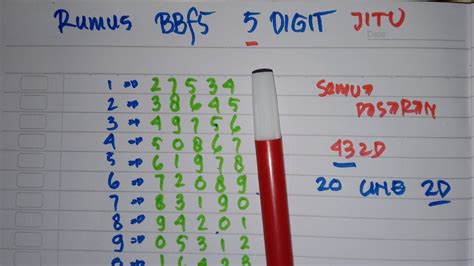 Rumus BBFS 5 DIGIT JITU
Date
1 => 2 7 5 3 4
2 => 3 8 6 4 5
3 => 4 9 7 5 6
4 => 5 0 8 6 7
5 => 6 1 9 7 8
6 => 7 2 0 8 9
7 => 8 3 1 9 0
8 => 9 4 2 0 1
9 => 0 5 3 1 2
SEMUA
PASARAN
432D
20 LINE 2D